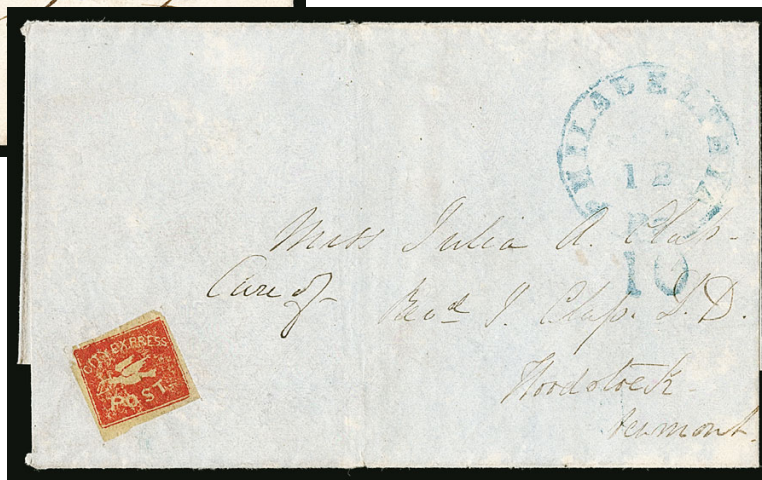 PHILADELPHIA
12
10
Miss Julia A. Clap.
Care of Revd J. Clap. D.
Woodstock
Vermont.
CITY EXPRESS
POST